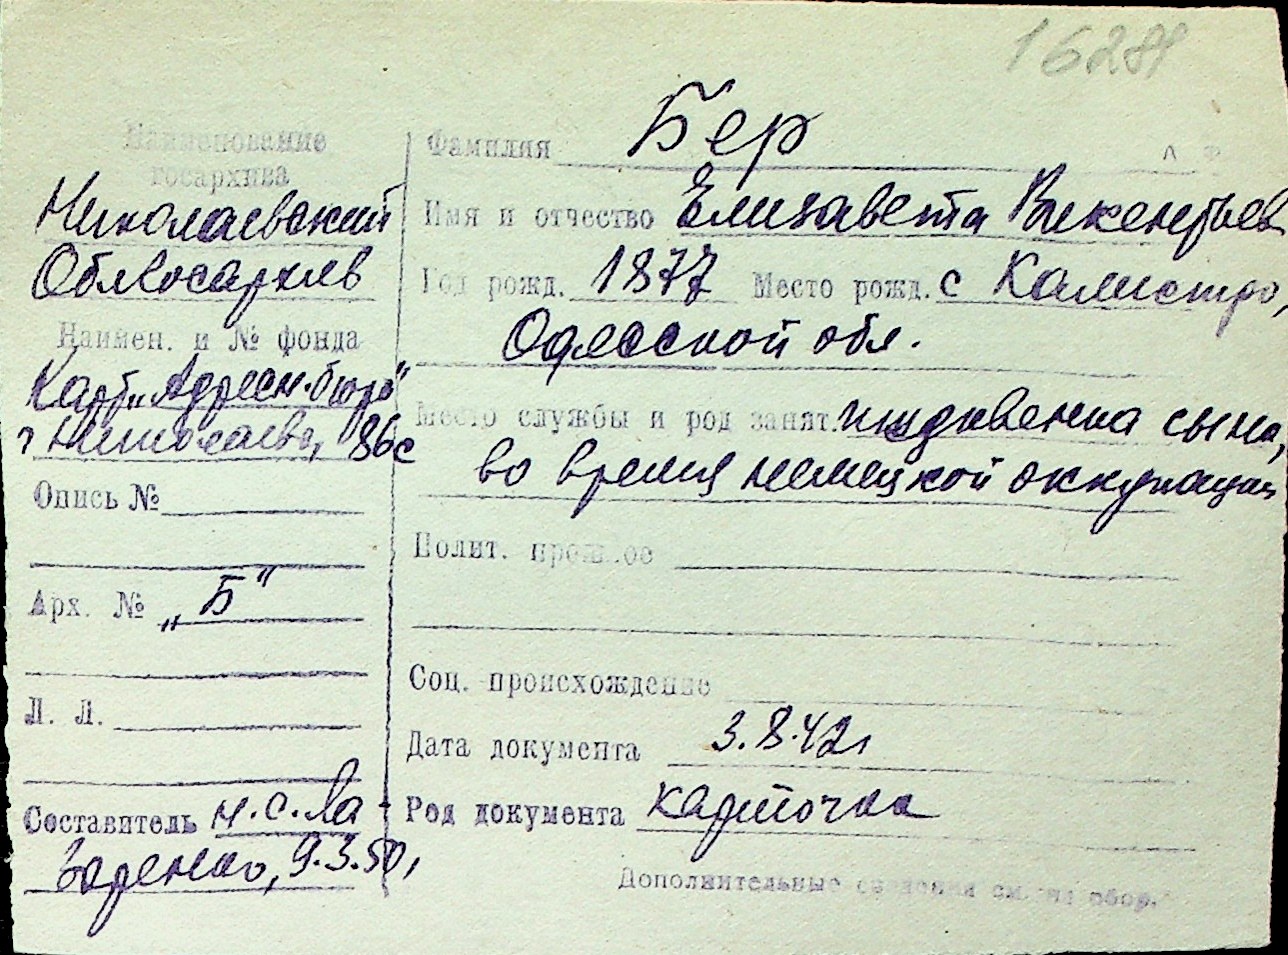 1628
Наименование
госархива
Николаевский
Облгосархив
Наимен. и № фонда
Карт. „Адресн. бюро"
г Николаева, 86с
Опись №
Арх. № „Б"
Л. Л.
Составитель Н. С. Ла-
заренко, 9.3.50,
Фамилия Бер
Имя и отчество Елизавета Викентьев
Год рожд. 1877 Место рожд. с Калистро,
Одесской обл.
Место службы и род занят. иждивенка сына,
во время немецкой оккупации
Полит. прошлое
Соц. происхождение
Дата документа 3.8.42г
Род документа карточка
Дополнительные сведения см. на обор.